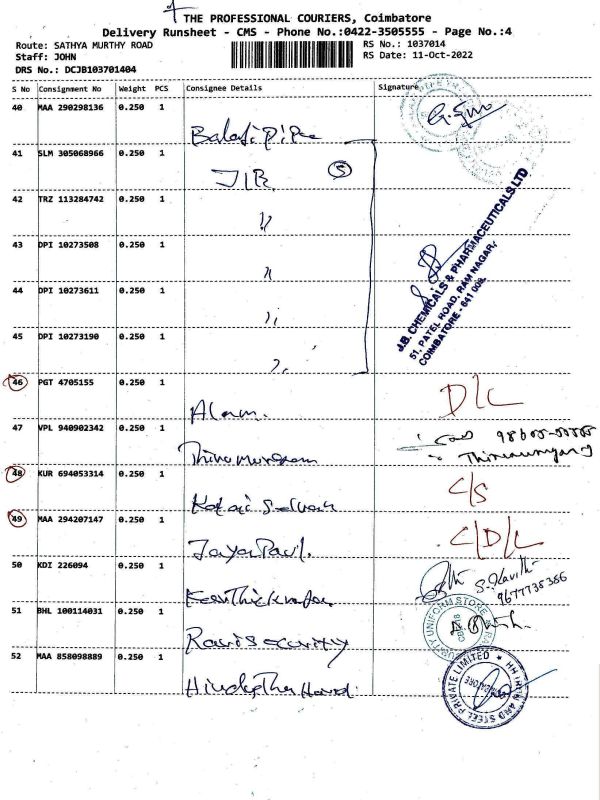 THE PROFESSIONAL COURIERS, Coimbatore
Delivery Runsheet - CMS - Phone No.:0422-3505555 - Page No.:4
Route: SATHYA MURTHY ROAD
RS No.: 1037014
Staff: JOHN
RS Date: 11-Oct-2022
DRS No.: DCJB103701404
S No Consignment No Weight PCS Consignee Details Signature
40 MAA 290298136 0.250 1
Balaji Pipe
41 SLM 305068966 0.250 1
JIB 5
42 TRZ 113284742 0.250 1
"
43 DPI 10273508 0.250 1
"
44 DPI 10273611 0.250 1
"
45 DPI 10273190 0.250 1
"
J.B. CHEMICALS & PHARMACEUTICALS LTD
51, PATEL ROAD, RAM NAGAR,
COIMBATORE - 641 009.
46 PGT 4705155 0.250 1
D/L
47 VPL 940902342 0.250 1
Thirumurugan
48 KUR 694053314 0.250 1
C/S
Kalai Selvan
49 MAA 294207147 0.250 1
C/D/L
Jaya Paul.
50 KDI 226094 0.250 1
S. Kavitha
9677738366
51 BHL 100114031 0.250 1
UNIFORM STORE
Ravi Security
52 MAA 858098889 0.250 1
AND STEEL PRIVATE LIMITED